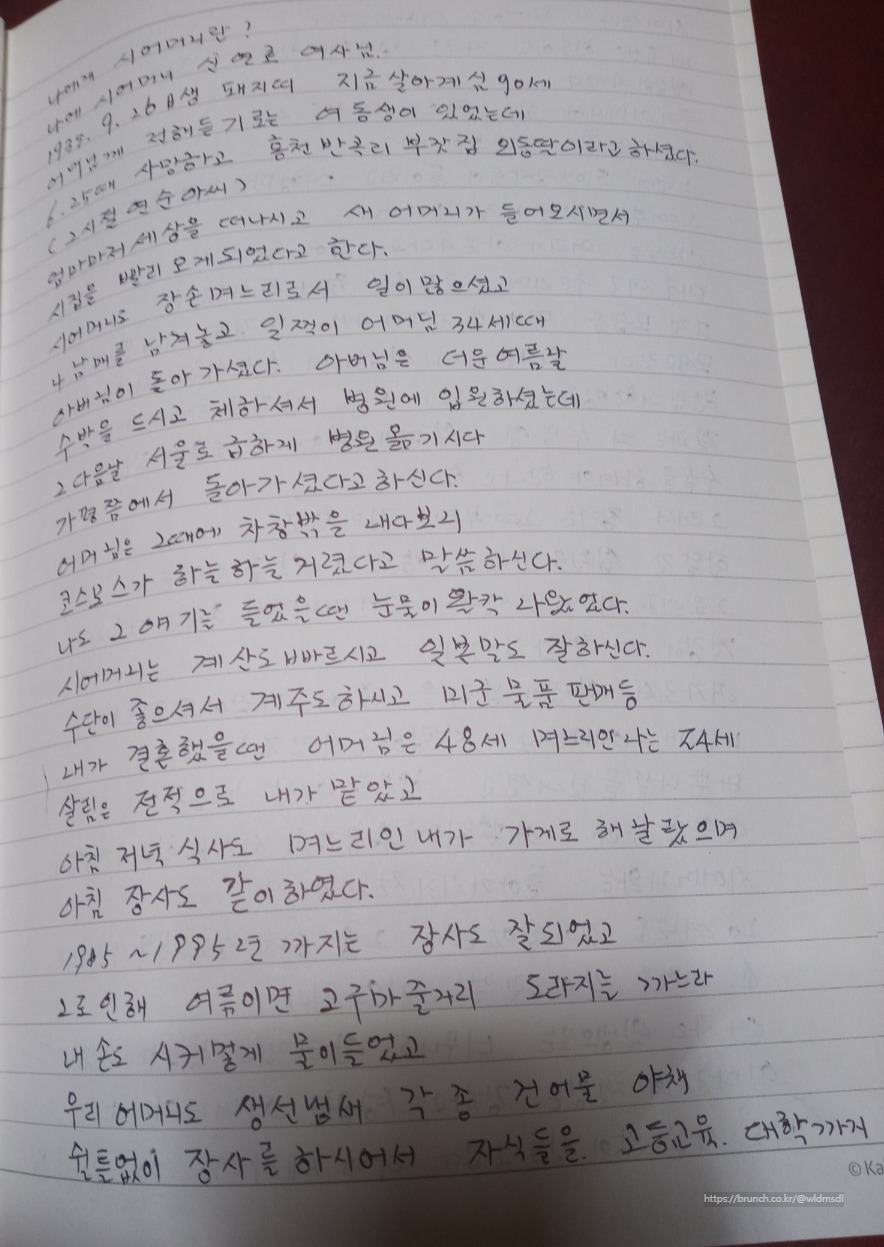 나에게 시어머니란?
나에 시어머니 신연호 여사님.
1935. 9. 26日생 돼지띠 지금 살아계심 90세
어머님께 전해듣기로는 여동생이 있었는데
6.25때 사망하고 홍천 반곡리 부잣집 외동딸이라고 하셨다.
(그시절 연순아씨)
엄마마저 세상을 떠나시고 새 어머니가 들어오시면서
시집을 빨리 오게되었다고 한다.
시어머니도 장손며느리로서 일이 많으셨고
4남매를 남겨놓고 일찍이 어머님 34세때
아버님이 돌아가셨다. 아버님은 더운여름날
수박을 드시고 체하셔서 병원에 입원하셨는데
그다음날 서울로 급하게 병원 옮기시다
가평쯤에서 돌아가셨다고하신다.
어머님은 그때에 차창밖을 내다보니
코스모스가 하늘하늘 거렸다고 말씀하신다.
나도 그 얘기를 들었을땐 눈물이 왈칵 나왔었다.
시어머니는 계산도 빠르시고 일본말도 잘하신다.
수단이 좋으셔서 계주도하시고 미군 물품 판매등
내가 결혼했을땐 어머님은 48세 며느리인나는 24세
살림은 전적으로 내가 맡았고
아침 저녁 식사도 며느리인 내가 가게로 해 날랐으며
아침 장사도 같이하였다.
1985~1995년 까지는 장사도 잘되었고
그로인해 여름이면 고구마줄거리 도라지를 까느라
내손도 시커멓게 물이들었고
우리 어머니도 생선냄새 각종 건어물 야채
쉴틈없이 장사를 하시어서 자식들을. 고등교육. 대학까지
© Ka
https://brunch.co.kr/@wldmsdl